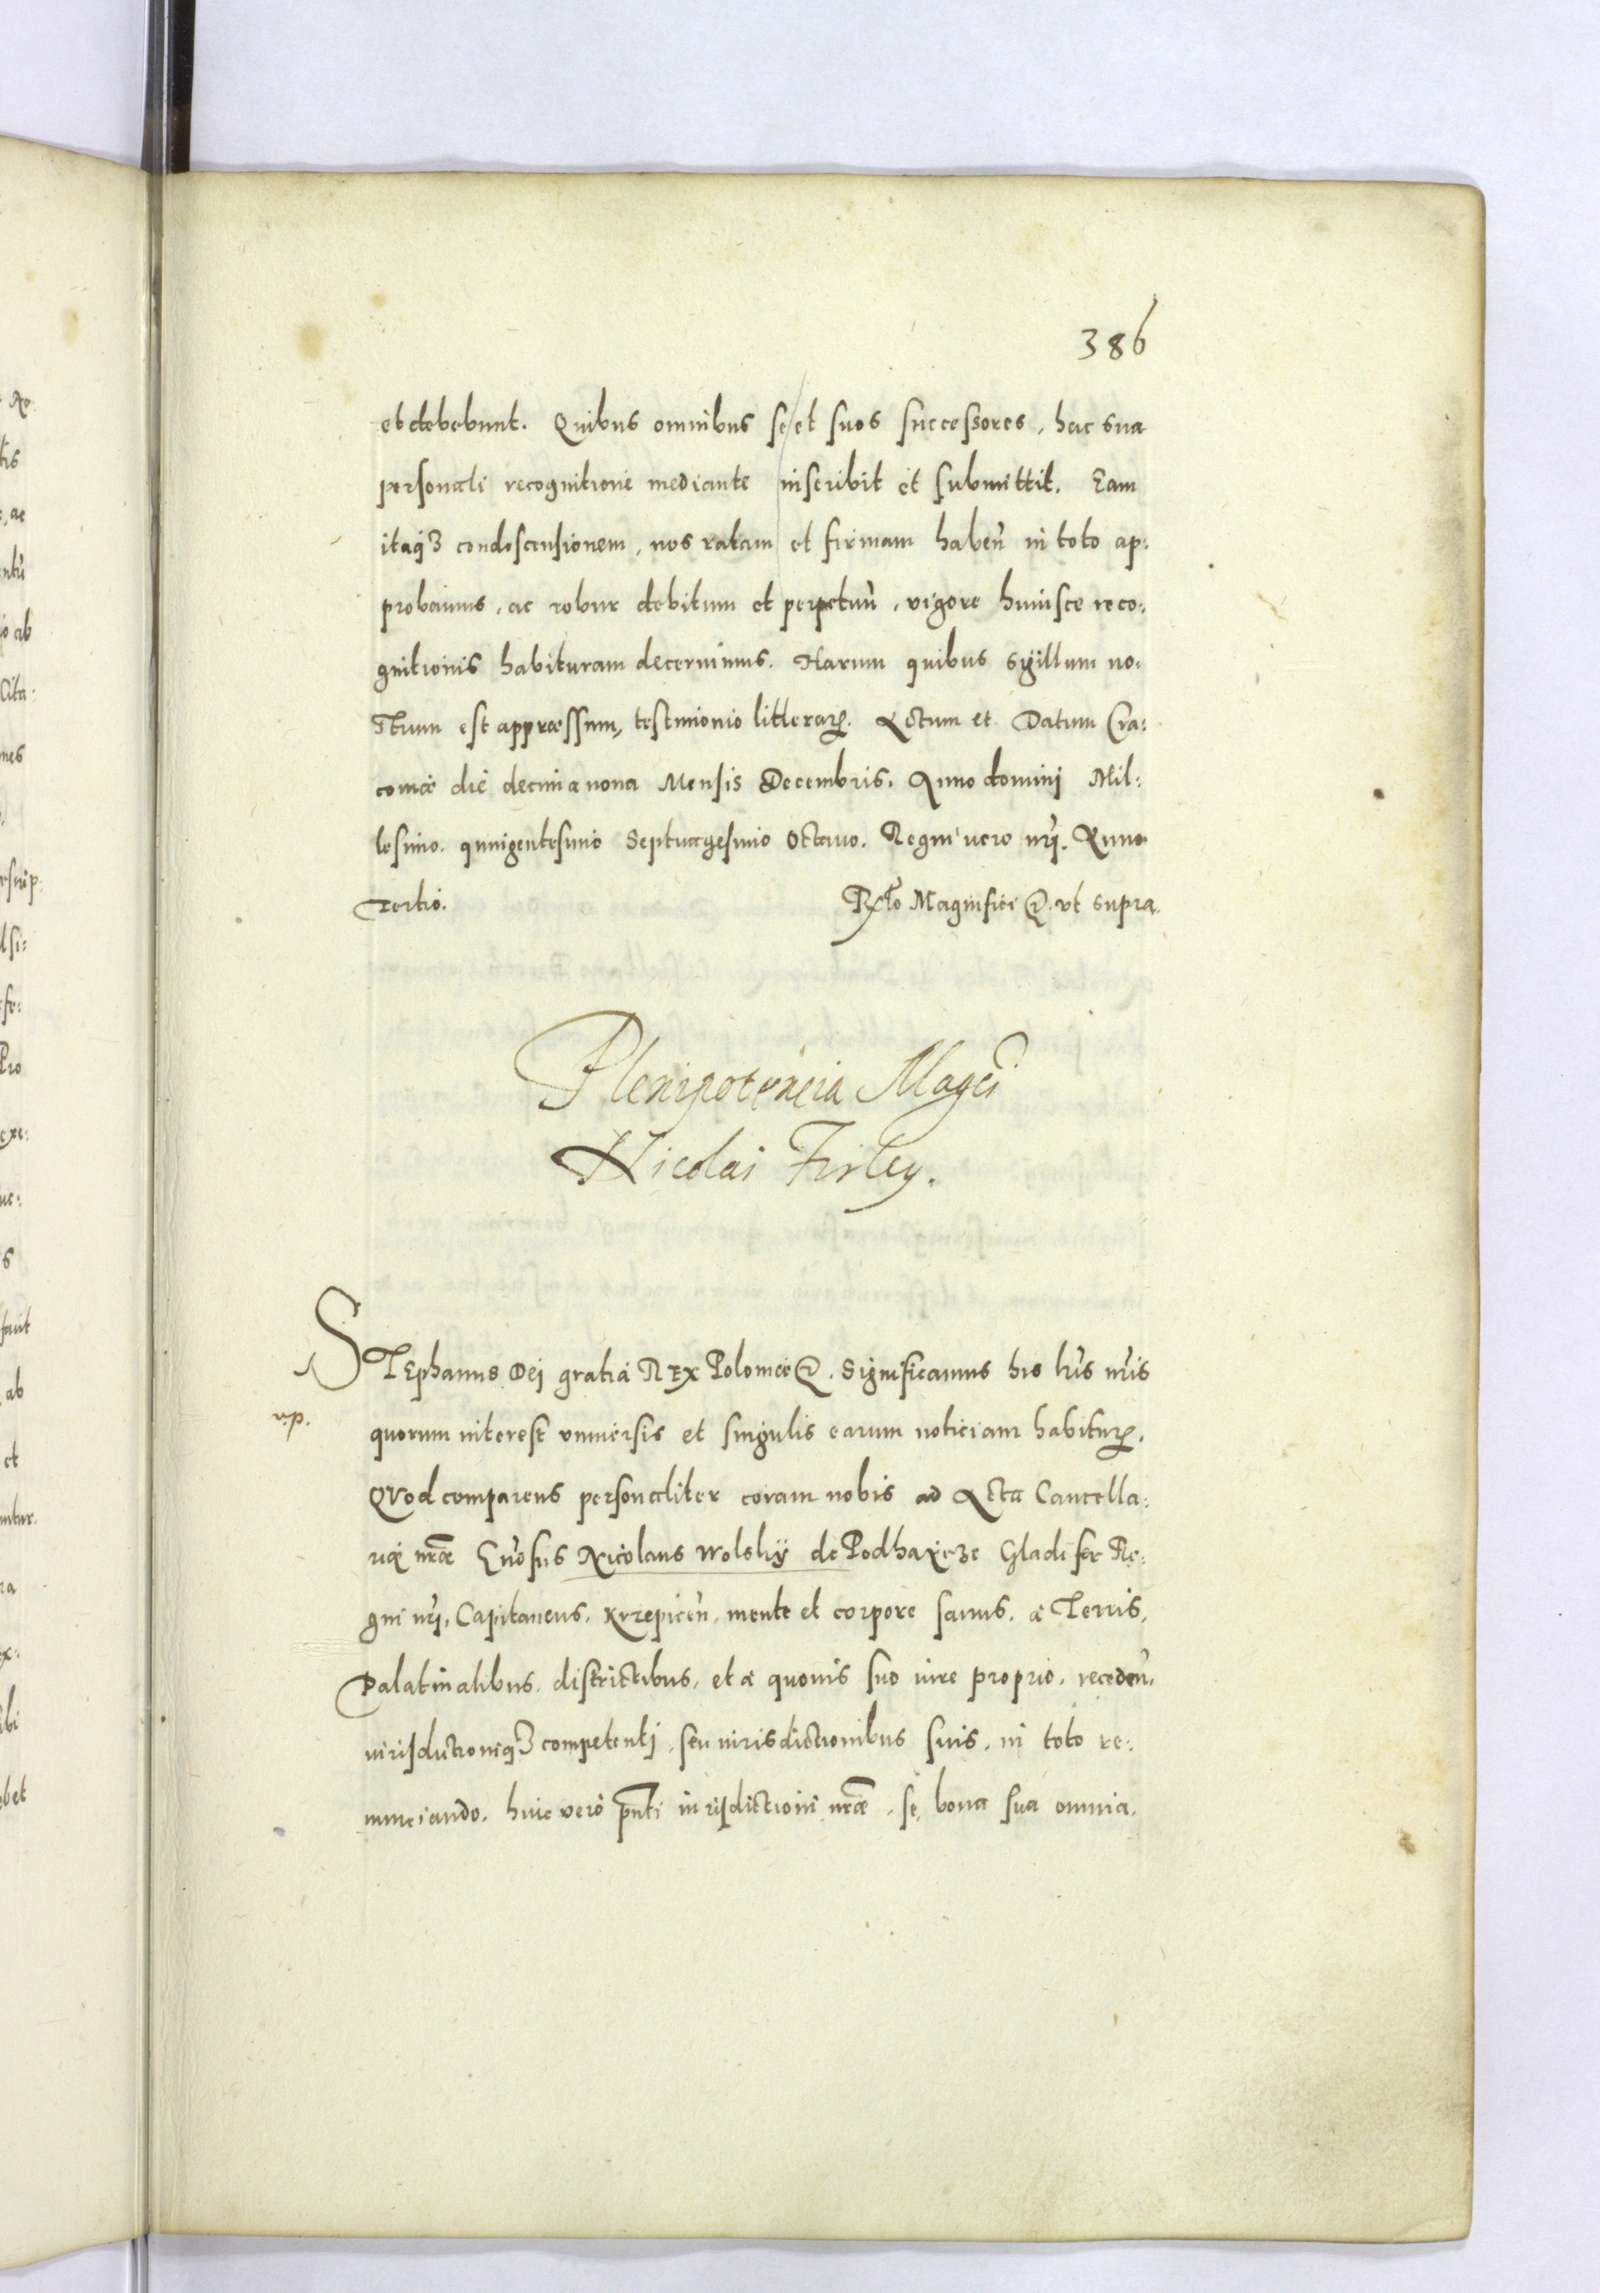 386
et debebunt. Quibus omnibus se et suos successores, hac sua
personali recognitione mediante inscribit et submittit. Eam
itaqȝ condescensionem, nos ratam et firmam habeñ in toto ap:
probamus, ac robur debitum et perpetuũ, vigore huiusce reco:
gnitionis habituram decernimus. Harum quibus sigillum no:
strum est appræssum, testimonio litterarꝝ. Actum et Datum Cra:
coviæ die decima nona Mensis Decembris. Anno domini Mil:
lesimo quingentesimo Septuagesimo Octavo. Regni vero nr̃i. Anno
Tertio. Rx̃to Magnifici &. vt supra.
Plenipotencia Mag̃ci
Nicolai Firley.
STEphanus Dei gratia REX Poloniæ &. Significamus his lr̃is nr̃is
r.p.
quorum interest vniuersis et singulis earum noticiam habiturꝝ.
QVod comparens personaliter coram nobis ad Acta Cancella:
riæ nr̃æ Gñosus Nicolaus Wolsky de Podhayecze Gladifer Re:
gni nr̃i, Capitaneus, Krzepiceñ, mente et corpore sanus, a Terris,
Palatinatibus, districtibus, et a quouis suo iure proprio, recedeñ,
iurisdictioniqȝ competenti, seu iurisdictionibus suis, in toto re:
nunciando, huic vero p̃nti iurisdictioni nr̃æ, se, bona sua omnia,